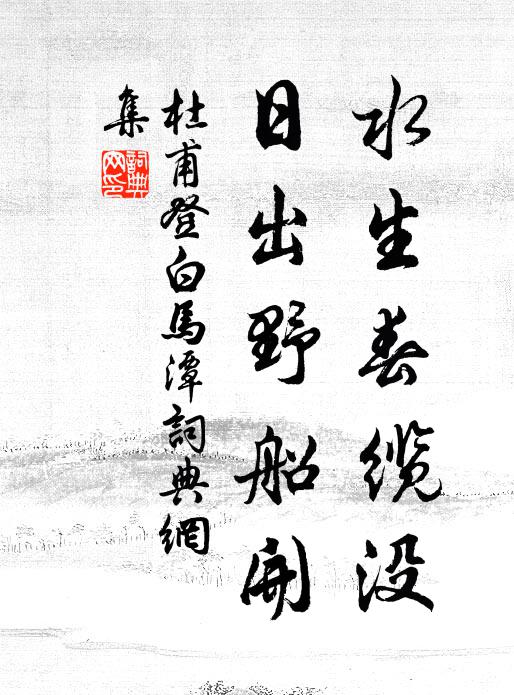 水生春缆没
日出野船开
杜甫登白馬潭詞典網
集
詞典
网印